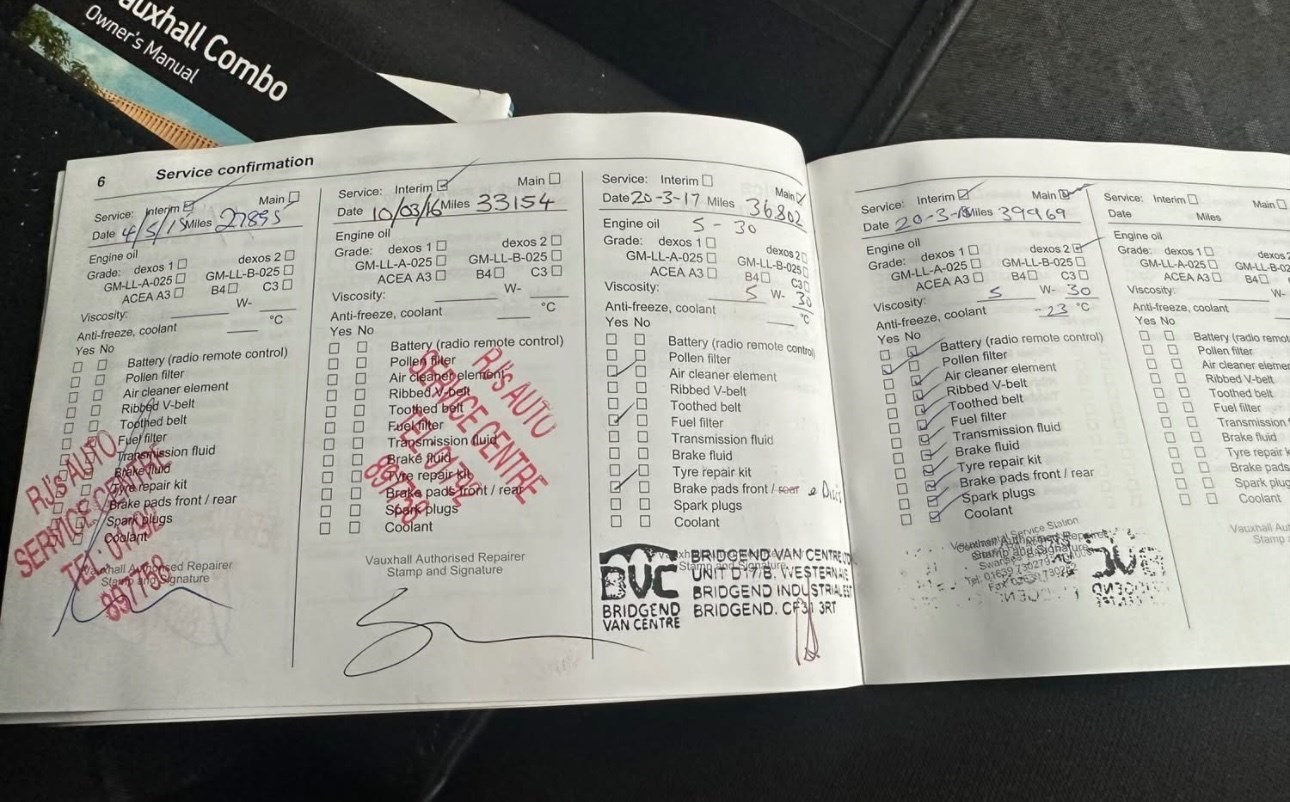 auxhall Combo
Owner's Manual
6 Service confirmation
Service: Interim Main
Date 4/5/15 Miles 27895
Engine oil
Grade: dexos 1 dexos 2
GM-LL-A-025 GM-LL-B-025
ACEA A3 B4 C3
Viscosity: W-
Anti-freeze, coolant °C
Yes No
Battery (radio remote control)
Pollen filter
Air cleaner element
Ribbed V-belt
Toothed belt
Fuel filter
Transmission fluid
Brake fluid
Tyre repair kit
Brake pads front / rear
Spark plugs
Coolant
Vauxhall Authorised Repairer
Stamp and Signature
RJ's AUTO
SERVICE CENTRE
TEL: 01792
897738
Service: Interim Main
Date 10/03/16 Miles 33154
Engine oil
Grade: dexos 1 dexos 2
GM-LL-A-025 GM-LL-B-025
ACEA A3 B4 C3
Viscosity: W-
Anti-freeze, coolant °C
Yes No
Battery (radio remote control)
Pollen filter
Air cleaner element
Ribbed V-belt
Toothed belt
Fuel filter
Transmission fluid
Brake fluid
Tyre repair kit
Brake pads front / rear
Spark plugs
Coolant
RJ's AUTO
SERVICE CENTRE
TEL: 01792
897738
Vauxhall Authorised Repairer
Stamp and Signature
Service: Interim Main
Date 20-3-17 Miles 36802
Engine oil 5-30
Grade: dexos 1 dexos 2
GM-LL-A-025 GM-LL-B-025
ACEA A3 B4 C3
Viscosity: 5 W- 30
Anti-freeze, coolant °C
Yes No
Battery (radio remote control)
Pollen filter
Air cleaner element
Ribbed V-belt
Toothed belt
Fuel filter
Transmission fluid
Brake fluid
Tyre repair kit
Brake pads front / rear
Spark plugs
Coolant
Stamp and Signature
BVC
BRIDGEND
VAN CENTRE
BRIDGEND VAN CENTRE LTD
UNIT D17/B. WESTERN AVE
BRIDGEND INDUSTRIAL EST
BRIDGEND. CF31 3RT
Service: Interim Main
Date 20-3-18 Miles 39969
Engine oil
Grade: dexos 1 dexos 2
GM-LL-A-025 GM-LL-B-025
ACEA A3 B4 C3
Viscosity: 5 W- 30
Anti-freeze, coolant -23 °C
Yes No
Battery (radio remote control)
Pollen filter
Air cleaner element
Ribbed V-belt
Toothed belt
Fuel filter
Transmission fluid
Brake fluid
Tyre repair kit
Brake pads front / rear
Spark plugs
Coolant
Vauxhall Authorised Repairer
Stamp and Signature
Service Station
Service: Interim Main
Date Miles
Engine oil
Grade: dexos 1 dexos 2
GM-LL-A-025 GM-LL-B-02
ACEA A3 B4
Viscosity: W-
Anti-freeze, coolant
Yes No
Battery (radio remot
Pollen filter
Air cleaner eleme
Ribbed V-belt
Toothed belt
Fuel filter
Transmission
Brake fluid
Tyre repair k
Brake pads
Spark plug
Coolant
Vauxhall Aut
Stamp